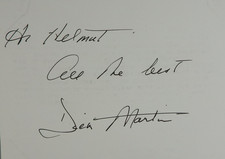 To Helmut
All the best
Dick Martin